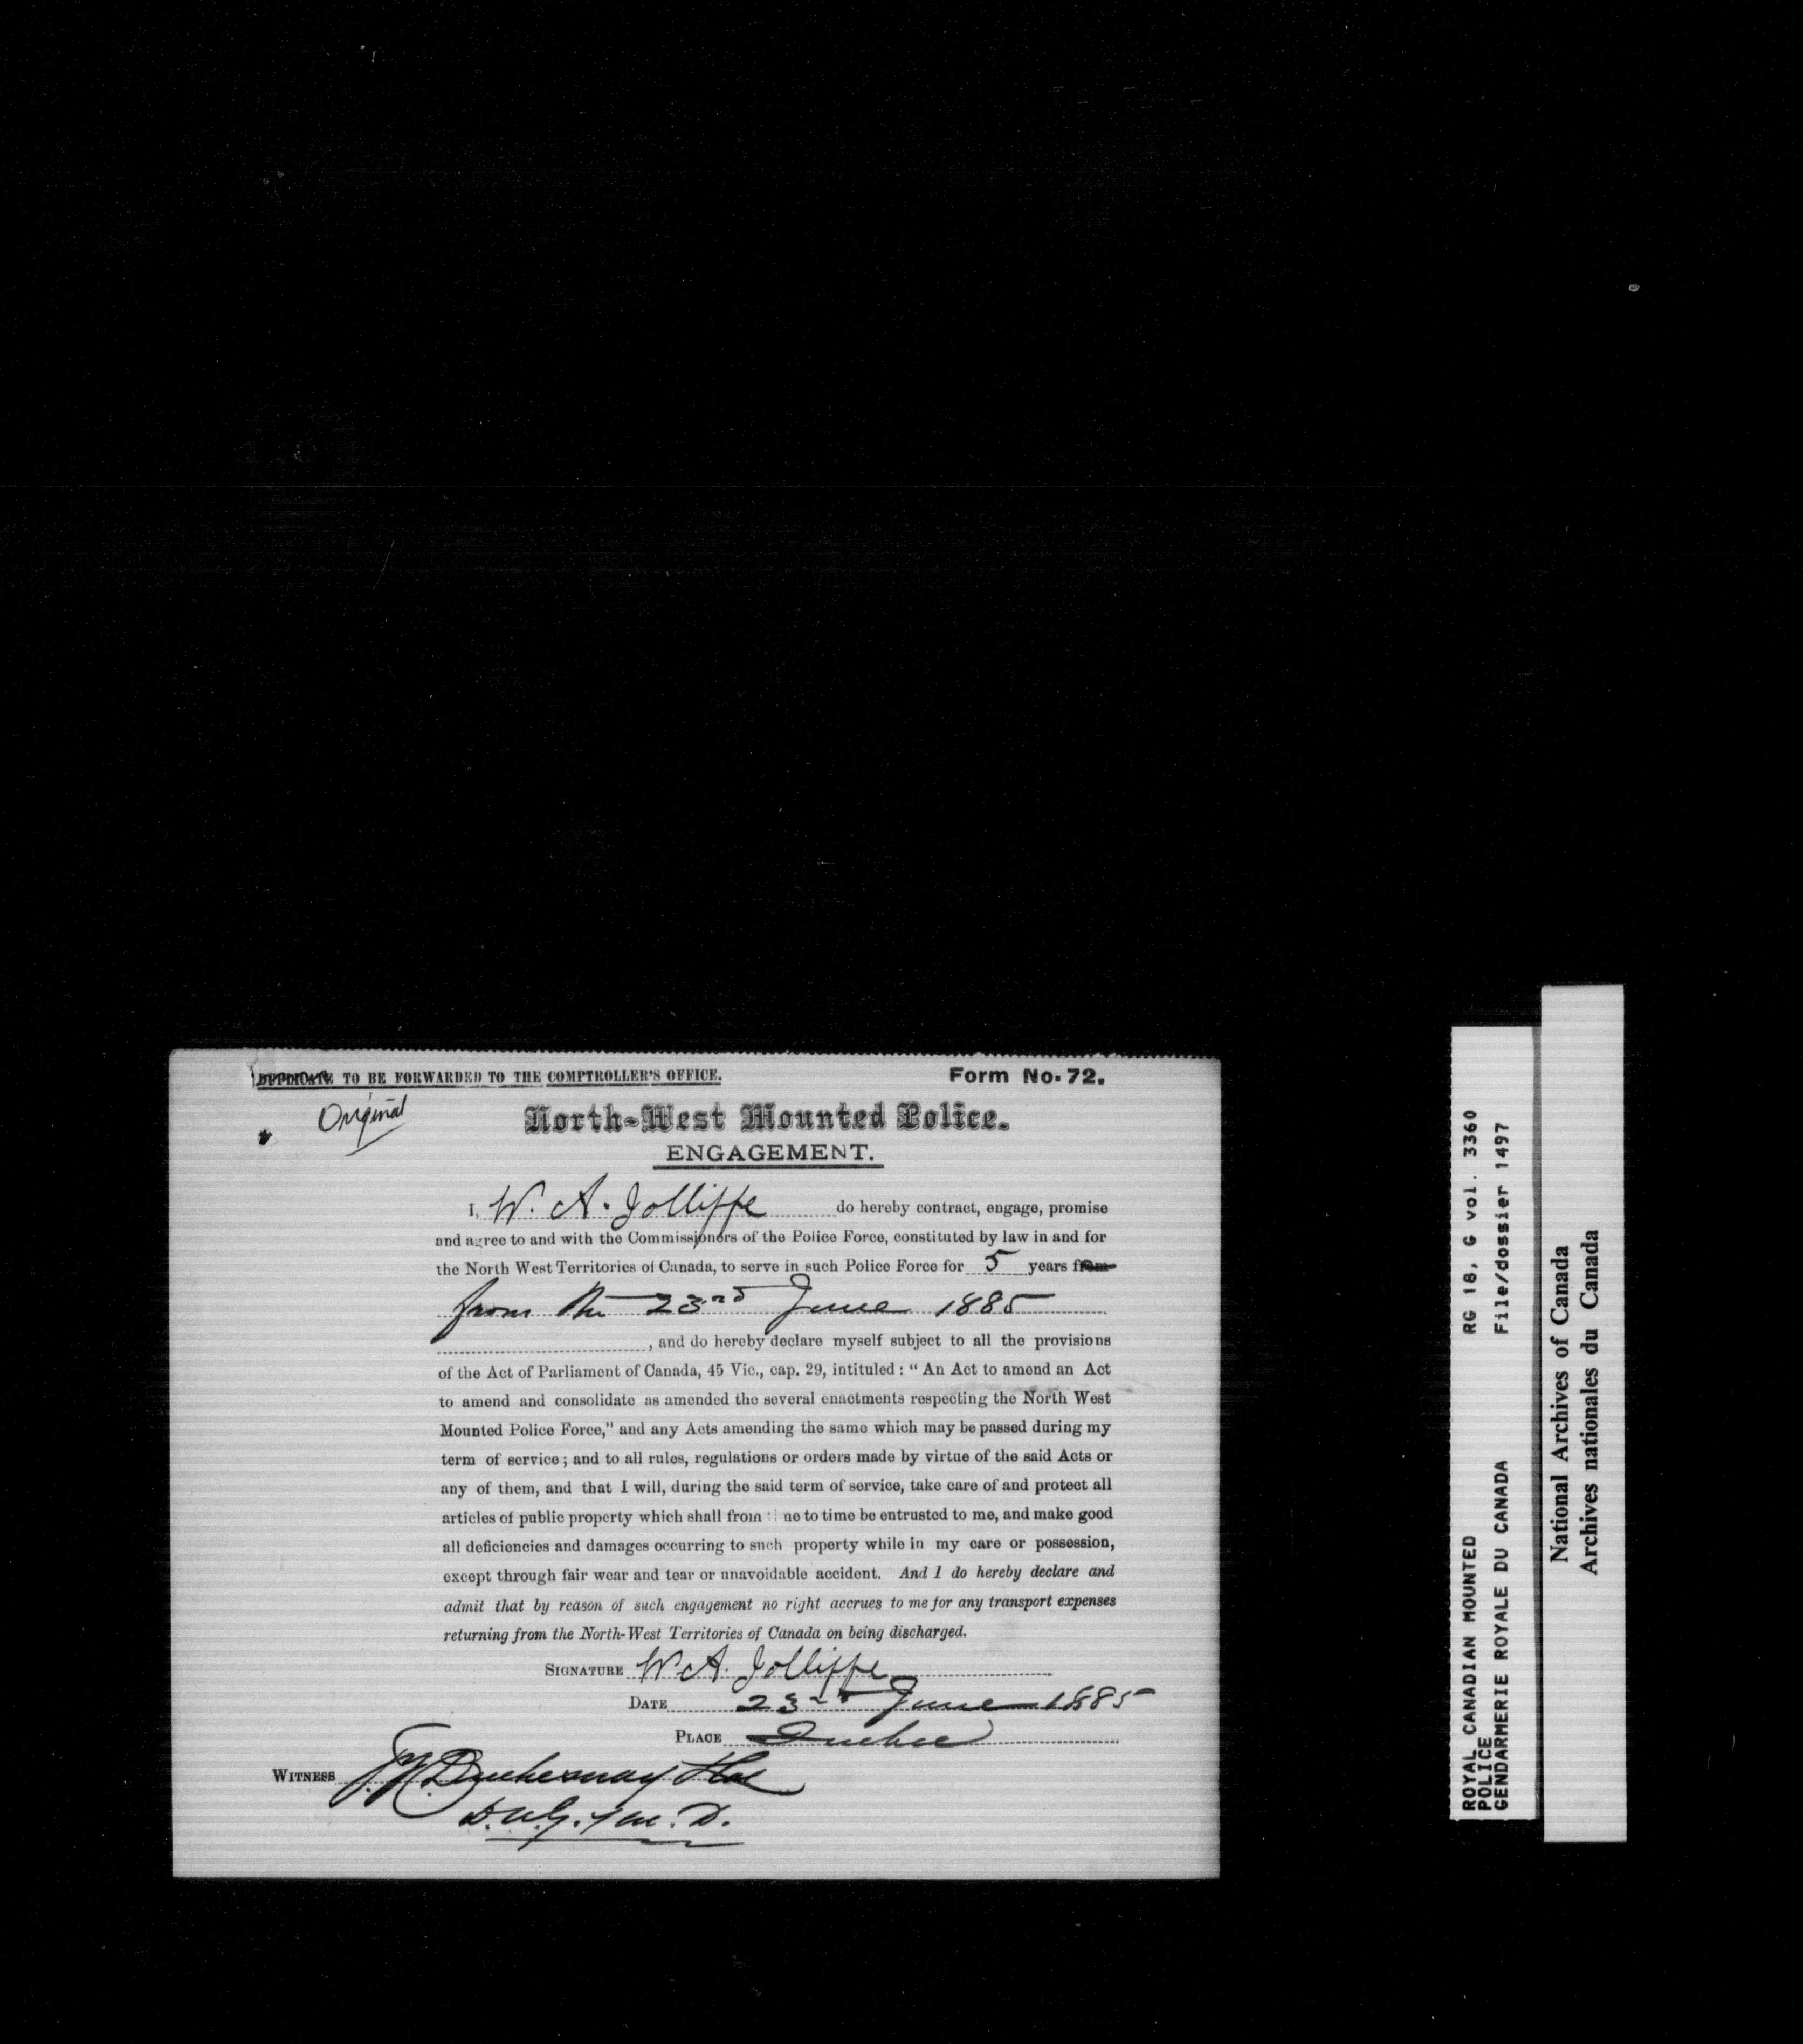 DUPLICATE TO BE FORWARDED TO THE COMPTROLLER'S OFFICE.
Form No. 72.
Original
North-West Mounted Police.
ENGAGEMENT.
I, W. A. Jolliffe do hereby contract, engage, promise
and agree to and with the Commissioners of the Police Force, constituted by law in and for
the North West Territories of Canada, to serve in such Police Force for 5 years from
from the 23rd June 1885
, and do hereby declare myself subject to all the provisions
of the Act of Parliament of Canada, 45 Vic., cap. 29, intituled : " An Act to amend an Act
to amend and consolidate as amended the several enactments respecting the North West
Mounted Police Force," and any Acts amending the same which may be passed during my
term of service ; and to all rules, regulations or orders made by virtue of the said Acts or
any of them, and that I will, during the said term of service, take care of and protect all
articles of public property which shall from time to time be entrusted to me, and make good
all deficiencies and damages occurring to such property while in my care or possession,
except through fair wear and tear or unavoidable accident. And I do hereby declare and
admit that by reason of such engagement no right accrues to me for any transport expenses
returning from the North-West Territories of Canada on being discharged.
SIGNATURE W. A. Jolliffe
DATE 23rd June 1885
PLACE Quebec
WITNESS Duchesnay
D.
ROYAL CANADIAN MOUNTED RG 18, G vol. 3360
POLICE
GENDARMERIE ROYALE DU CANADA File/dossier 1497
National Archives of Canada
Archives nationales du Canada